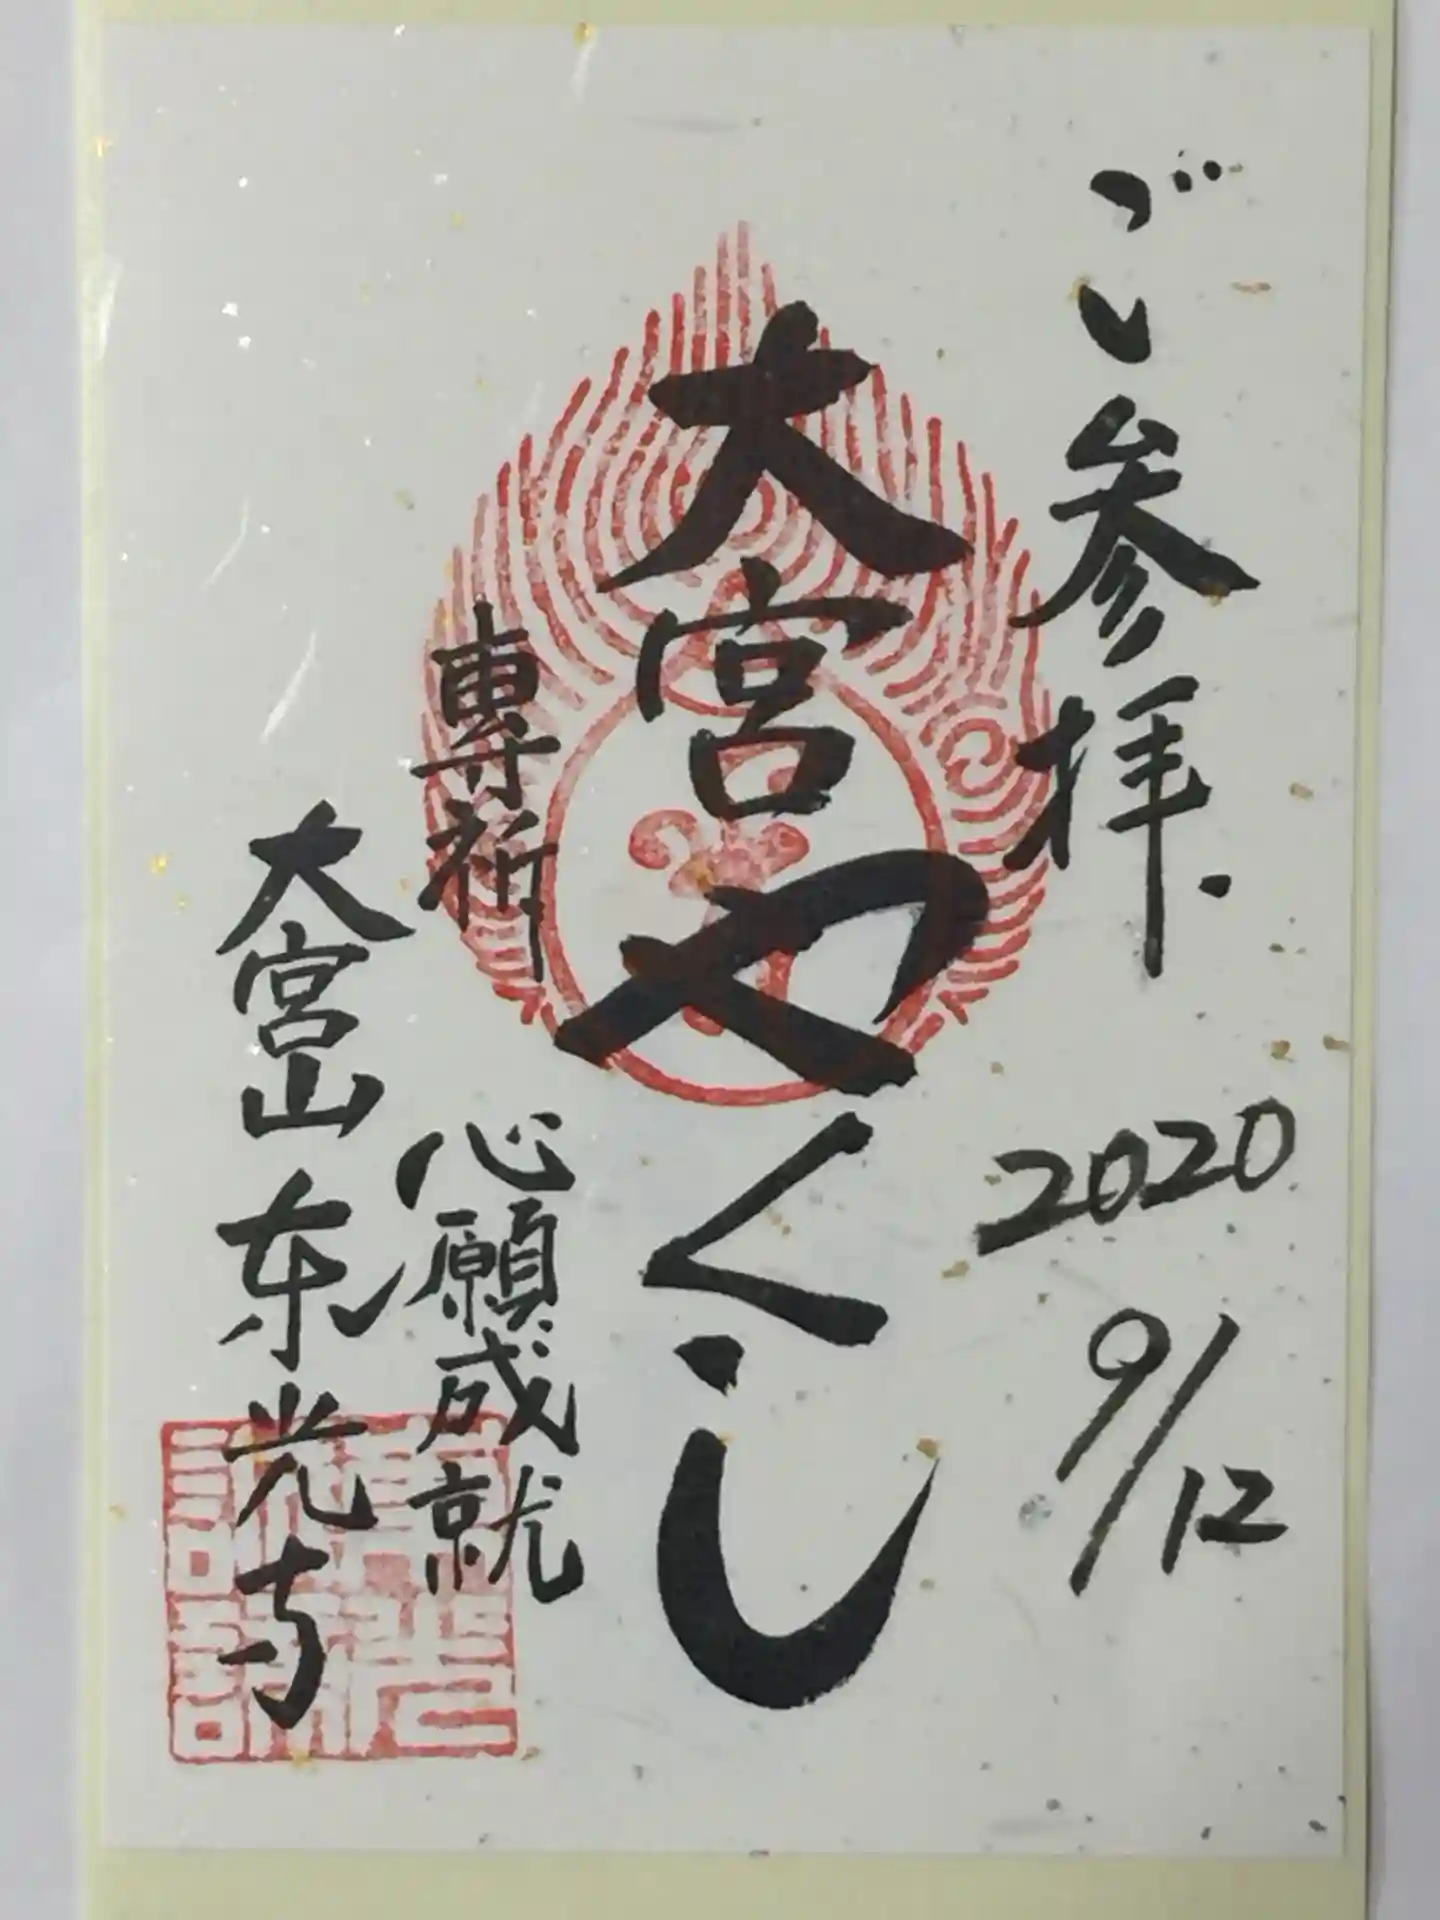 ご参拝.
2020
9/12
大宮やくし
専祈
心願成就
大宮山东光寺